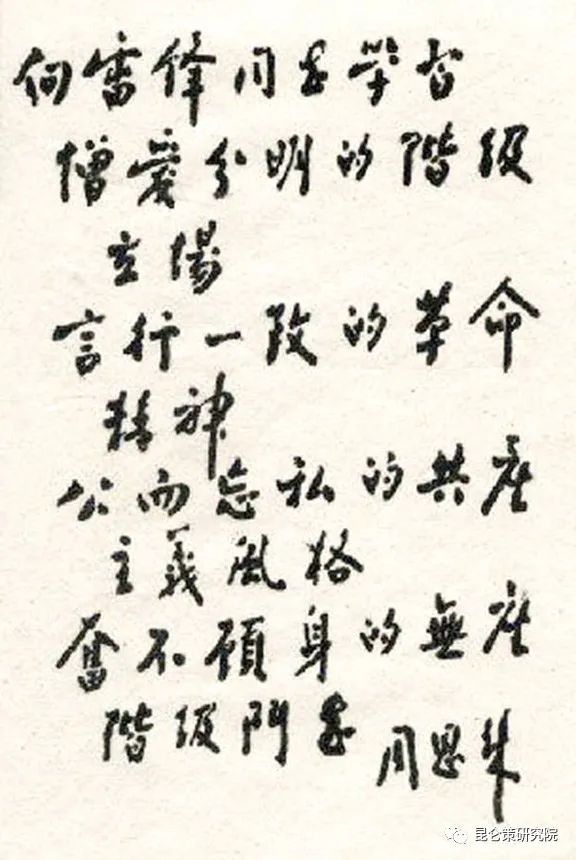 向雷锋同志学习
憎爱分明的階级
立場
言行一致的革命
精神
公而忘私的共产
主義風格
奮不顾身的無产
階级鬥志
周恩来
昆仑策研究院